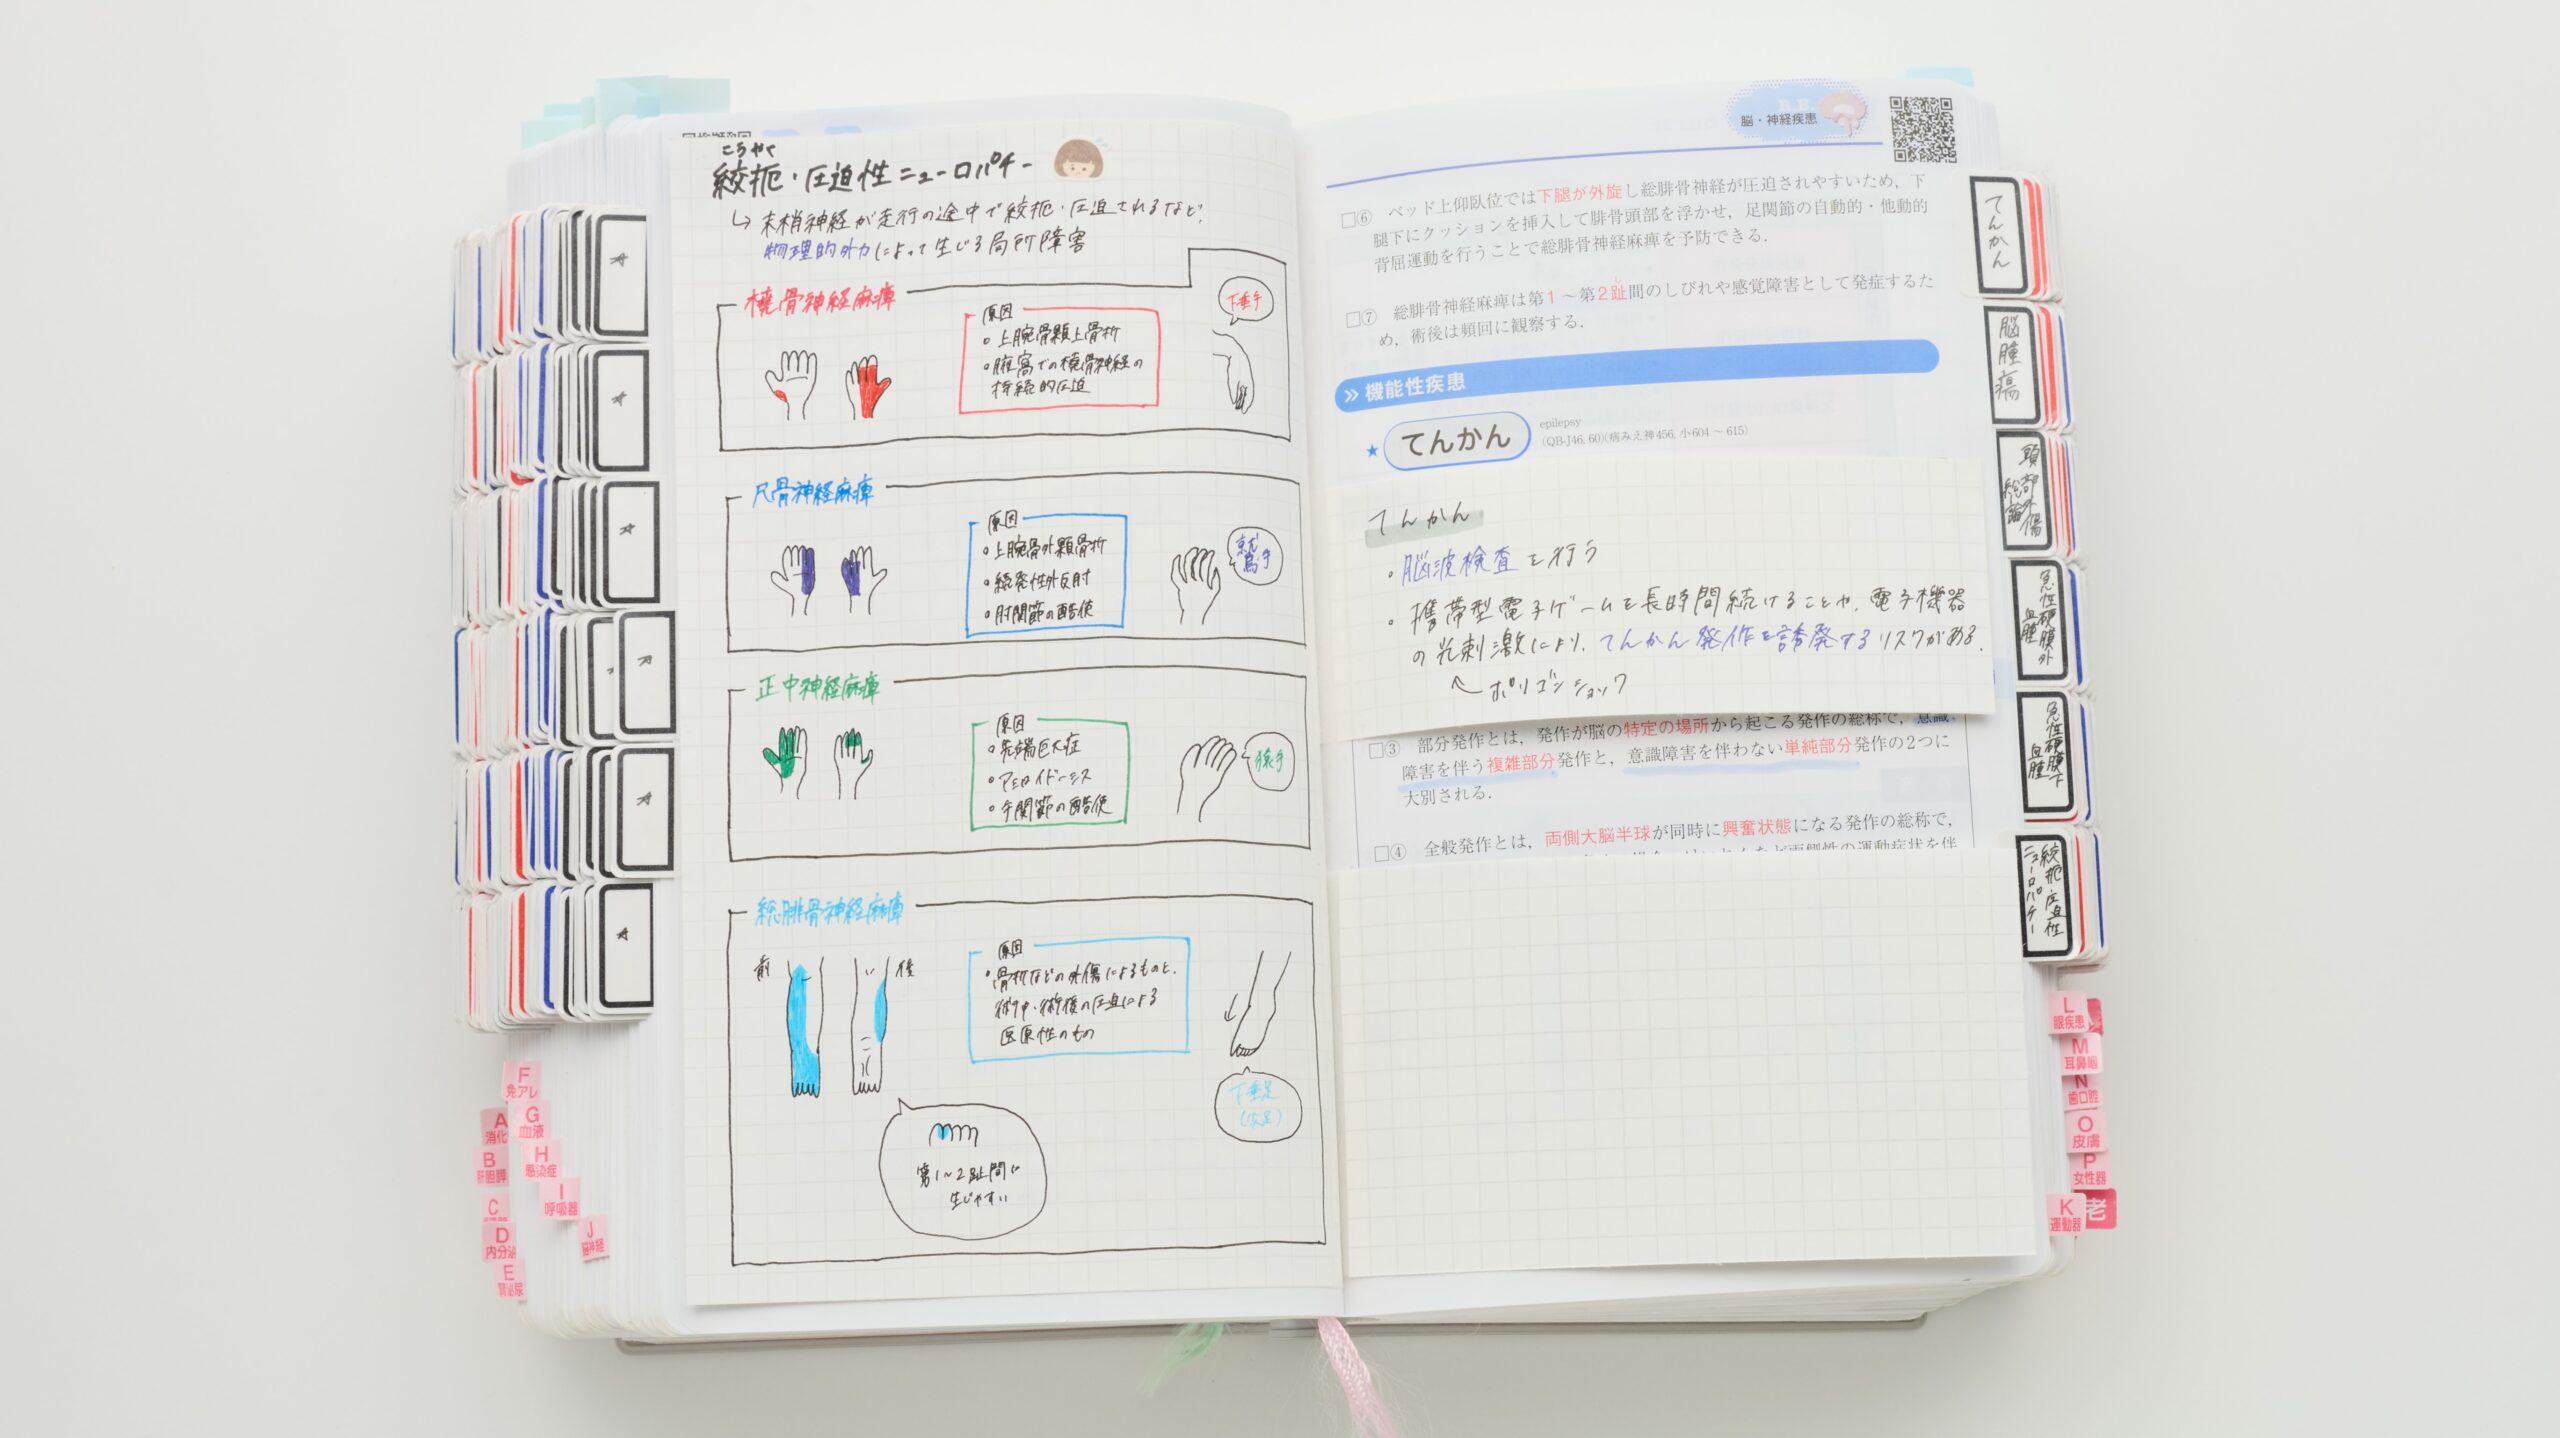 こうやく
絞扼・圧迫性ニューロパチー
↳ 末梢神経が走行の途中で絞扼・圧迫されるなど、
物理的外力によって生じる局所障害
橈骨神経麻痺
原因
・上腕骨顆上骨折
・腋窩での橈骨神経の
持続的圧迫
下垂手
尺骨神経麻痺
原因
・上腕骨外顆骨折
・続発性外反肘
・肘関節の酷使
鷲手
正中神経麻痺
原因
・先端巨大症
・アミロイドーシス
・手関節の酷使
猿手
総腓骨神経麻痺
前
後
原因
・骨折などの外傷によるものと、
術中・術後の圧迫による
医原性のもの
下垂足
(尖足)
第1〜2趾間に
生じやすい
R.B.
脳・神経疾患
□⑥ ベッド上仰臥位では下腿が外旋し総腓骨神経が圧迫されやすいため，下
腿下にクッションを挿入して腓骨頭部を浮かせ，足関節の自動的・他動的
背屈運動を行うことで総腓骨神経麻痺を予防できる．
□⑦ 総腓骨神経麻痺は第1〜第2趾間のしびれや感覚障害として発症するた
め，術後は頻回に観察する．
» 機能性疾患
★ てんかん
epilepsy
(QB-J46, 60)(病みえ神456, 小604〜615)
てんかん
・脳波検査を行う
・携帯型電子ゲームを長時間続けることや、電子機器
の光刺激により、てんかん発作を誘発するリスクがある.
↖ ポリゴンショック
□③ 部分発作とは，発作が脳の特定の場所から起こる発作の総称で，意識
障害を伴う複雑部分発作と，意識障害を伴わない単純部分発作の2つに
大別される．
□④ 全般発作とは，両側大脳半球が同時に興奮状態になる発作の総称で，
てんかん
脳腫瘍
頭部外傷
総論
急性硬膜外
血腫
急性硬膜下
血腫
絞扼・圧迫性
ニューロパチー
L
眼疾患
M
耳鼻咽
N
歯口腔
O
皮膚
P
女性器
K
運動器
老
F
免アレ
G
血液
A
消化
H
感染症
B
肝胆膵
I
呼吸器
C
J
脳神経
D
内分泌
E
腎泌尿